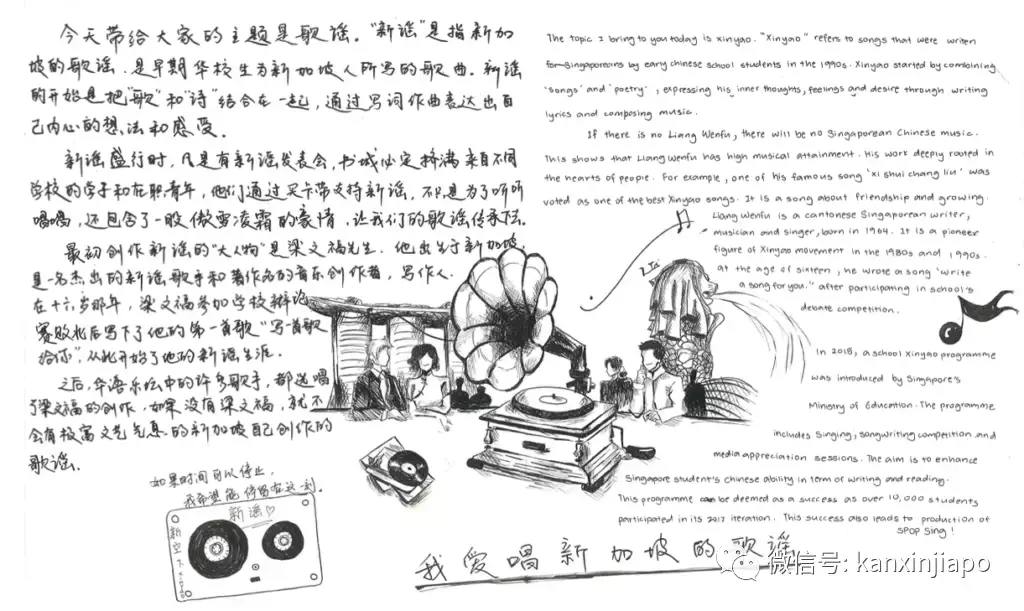 今天带给大家的主题是歌谣。"新谣"是指新加
坡的歌谣,是早期华校生为新加坡人所写的歌曲。新谣
的开始是把"歌"和"诗"结合在一起,通过写词作曲表达出自
己内心的想法和感受。
新谣盛行时,凡是有新谣发表会,书城必定挤满来自不同
学校的学子和在职青年,他们通过买卡带支持新谣。不只是为了听听
唱唱,还包含了一股傲雪凌霜的豪情,让我们的歌谣传承下去。
最初创作新谣的"大人物"是梁文福先生。他出生于新加坡
是一名杰出的新谣歌手和著作名的音乐创作者,写作人。
在十六岁那年,梁文福参加学校辩论
赛败北后写下了他的第一首歌"写一首歌
给你",从此开始了他的新谣生涯。
之后,华语乐坛中的许多歌手,都选唱
了梁文福的创作。如果没有梁文福,就不
会有极富文艺气息的新加坡自己创作的
歌谣。
如果时间可以停止,
我希望能停留在这一刻。
新谣♡
新空下
The topic I bring to you today is xinyao. "Xinyao" refers to songs that were writen
for Singaporeans by eary chinese school students in the 1990s. Xinyao started by combining
'songs' and 'poetry', expressing his inner thoughts, feelings and desire through writing
lyrics and composing music.
If there is no Liang Wenfu, there will be no Singaporean Chinese music.
This shows that Liang Wenfu has high musical attainment. His work deeply rooted in
the hearts of people. For example, one of his famous song 'xi shui chang liu' was
voted as one of the best Xinyao songs. It is a song about friendship and growing.
Liang Wenfu is a cantonese Singaporean writer,
musician and singer, born in 1964. It is a pioneer
figure of Xinyao movement in the 1980s and 1990s.
at the age of sixteen, he wrote a song 'write
a song for you." after participating in school's
debate competition.
In 2015, a school Xinyao programme
was introduced by Singapore's
Ministry of Education. The programme
includes Singing, songwriting competition and
media appreciation sessions. The aim is to enhance
Singapore student's chinese ability in term of writing and reading.
This programme can be deemed as a success as over 10,000 students
participated in its 2017 iteration. This success also leads to production of
SPOP Sing!
我爱唱新加坡的歌谣
微信号: kanxinjiapo